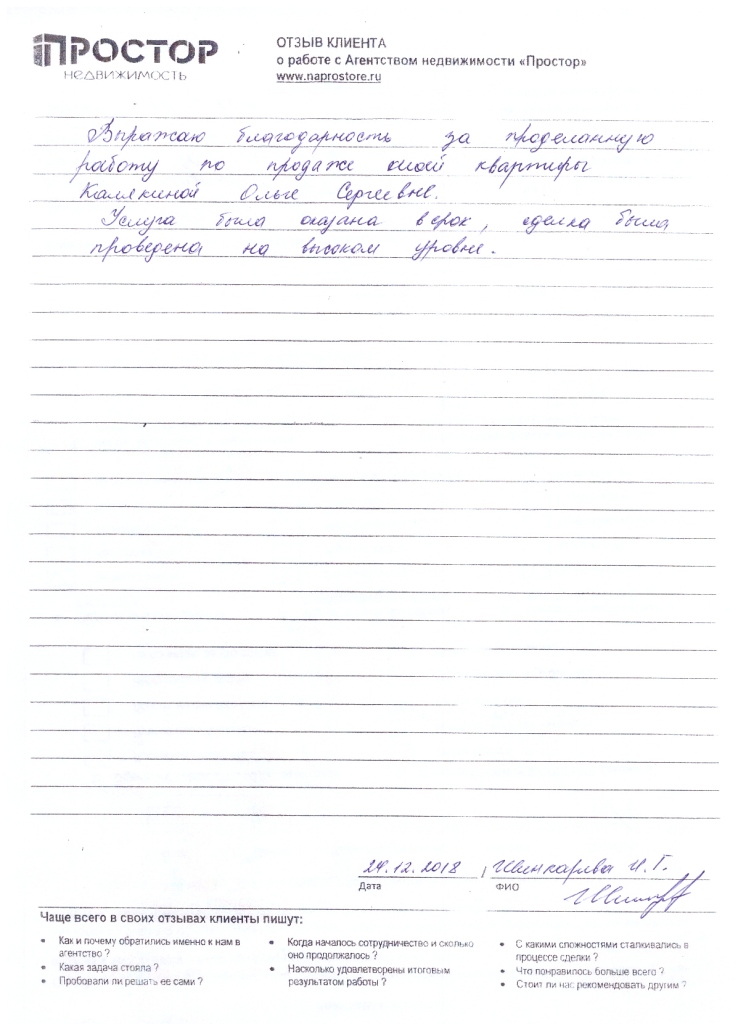 ПРОСТОР
НЕДВИЖИМОСТЬ
ОТЗЫВ КЛИЕНТА
о работе с Агентством недвижимости «Простор»
www.naprostore.ru
Выражаю благодарность за проделанную
работу по продаже моей квартиры
Калякиной Ольге Сергеевне.
Услуга была оказана в срок, сделка была
проведена на высоком уровне.
24.12.2018, Шинкарева И.Г.
Дата ФИО
Чаще всего в своих отзывах клиенты пишут:
• Как и почему обратились именно к нам в агентство ?
• Какая задача стояла ?
• Пробовали ли решать ее сами ?
• Когда началось сотрудничество и сколько оно продолжалось ?
• Насколько удовлетворены итоговым результатом работы ?
• С какими сложностями сталкивались в процессе сделки ?
• Что понравилось больше всего ?
• Стоит ли нас рекомендовать другим ?